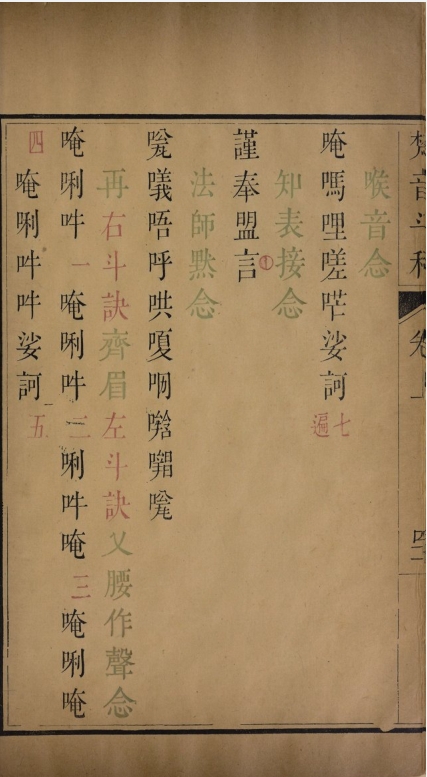 梵音斗科 卷上
喉音念
唵嗎哩嗟娑訶七遍
知表接念
謹奉盟言①
法師黙念
唔呼哄嗄
再右斗訣齊眉左斗訣叉腰作聲念
唵唎吽一唵唎吽二唎吽唵三唵唎唵
四唵唎吽吽娑訶五